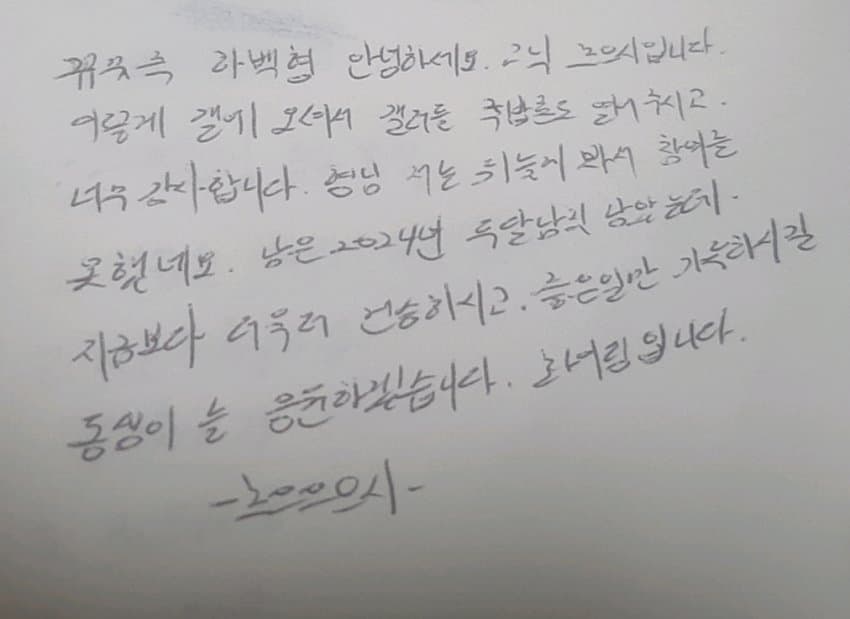 하백형 안녕하세요. 고닉 노으시입니다.
이렇게 갤에 오셔서 갤러들 취합폼도 열어 주시고.
너무 감사합니다. 형님 저는 뒤늦게 봐서 참여를
못했네요. 남은 2024년 두달남짓 남았는데.
지금보다 더욱더 건승하시고. 좋은일만 가득하시길
동생이 늘 응원하겠습니다. 화이팅입니다.